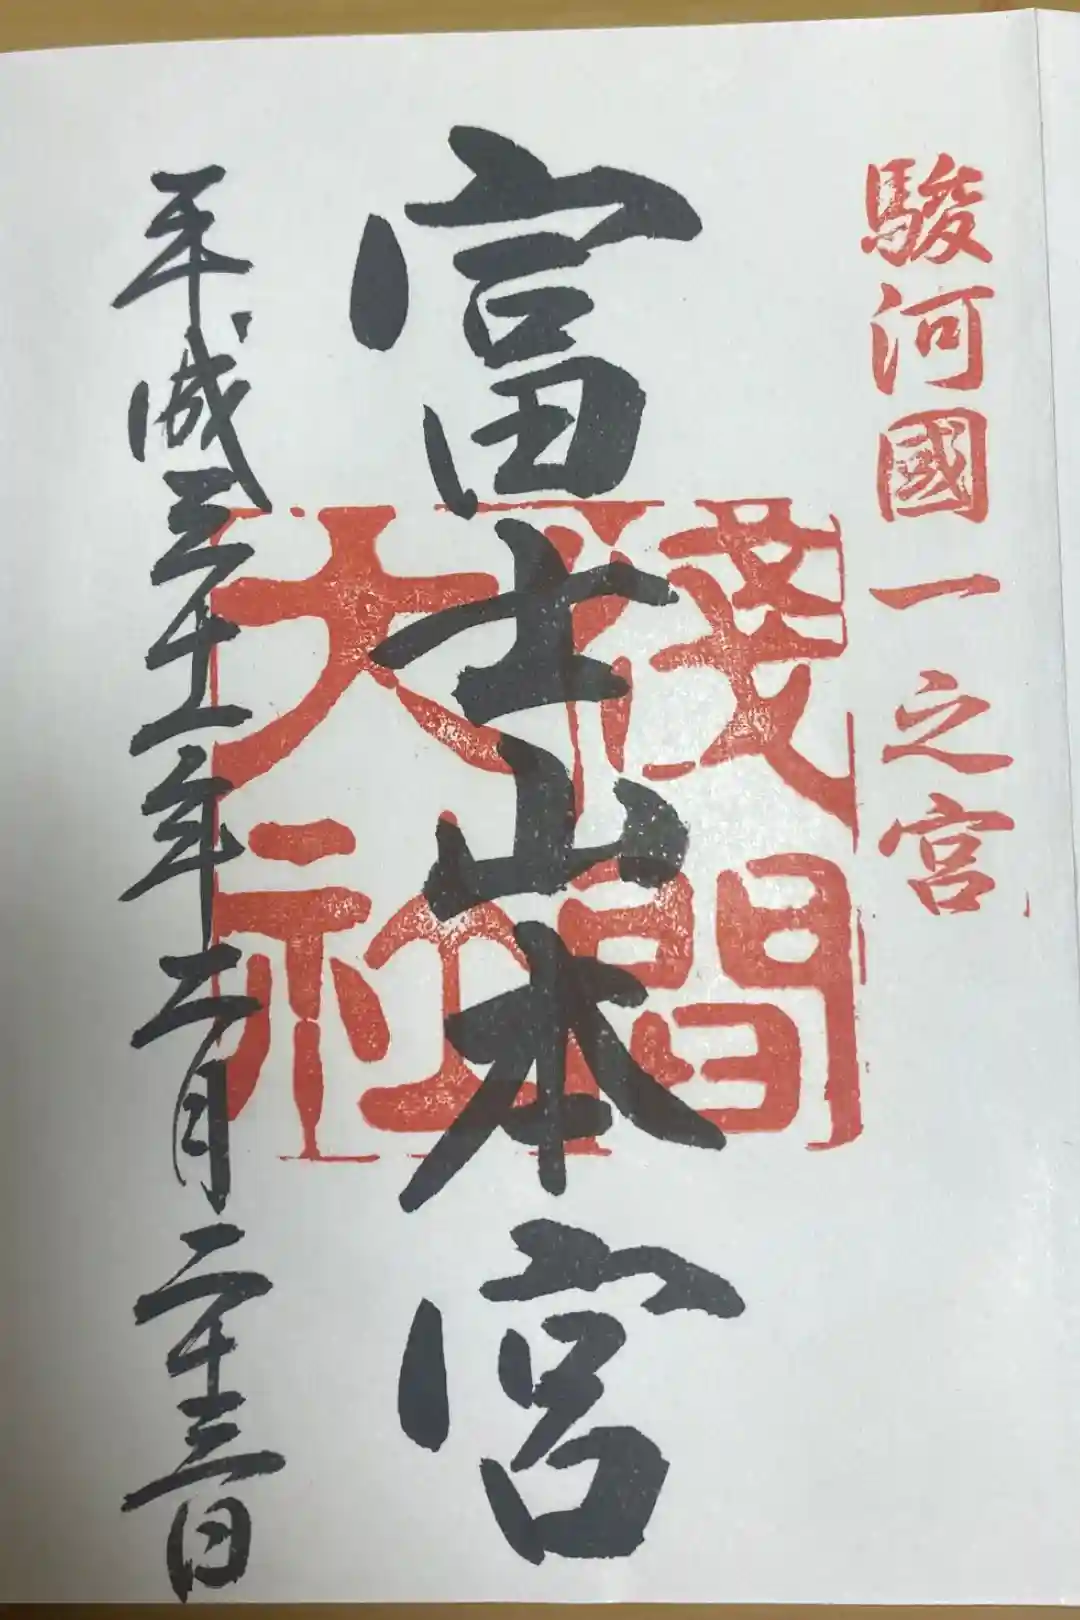 駿河國一之宮
富士山本宮
淺間
大社
平成三十一年二月二十三日